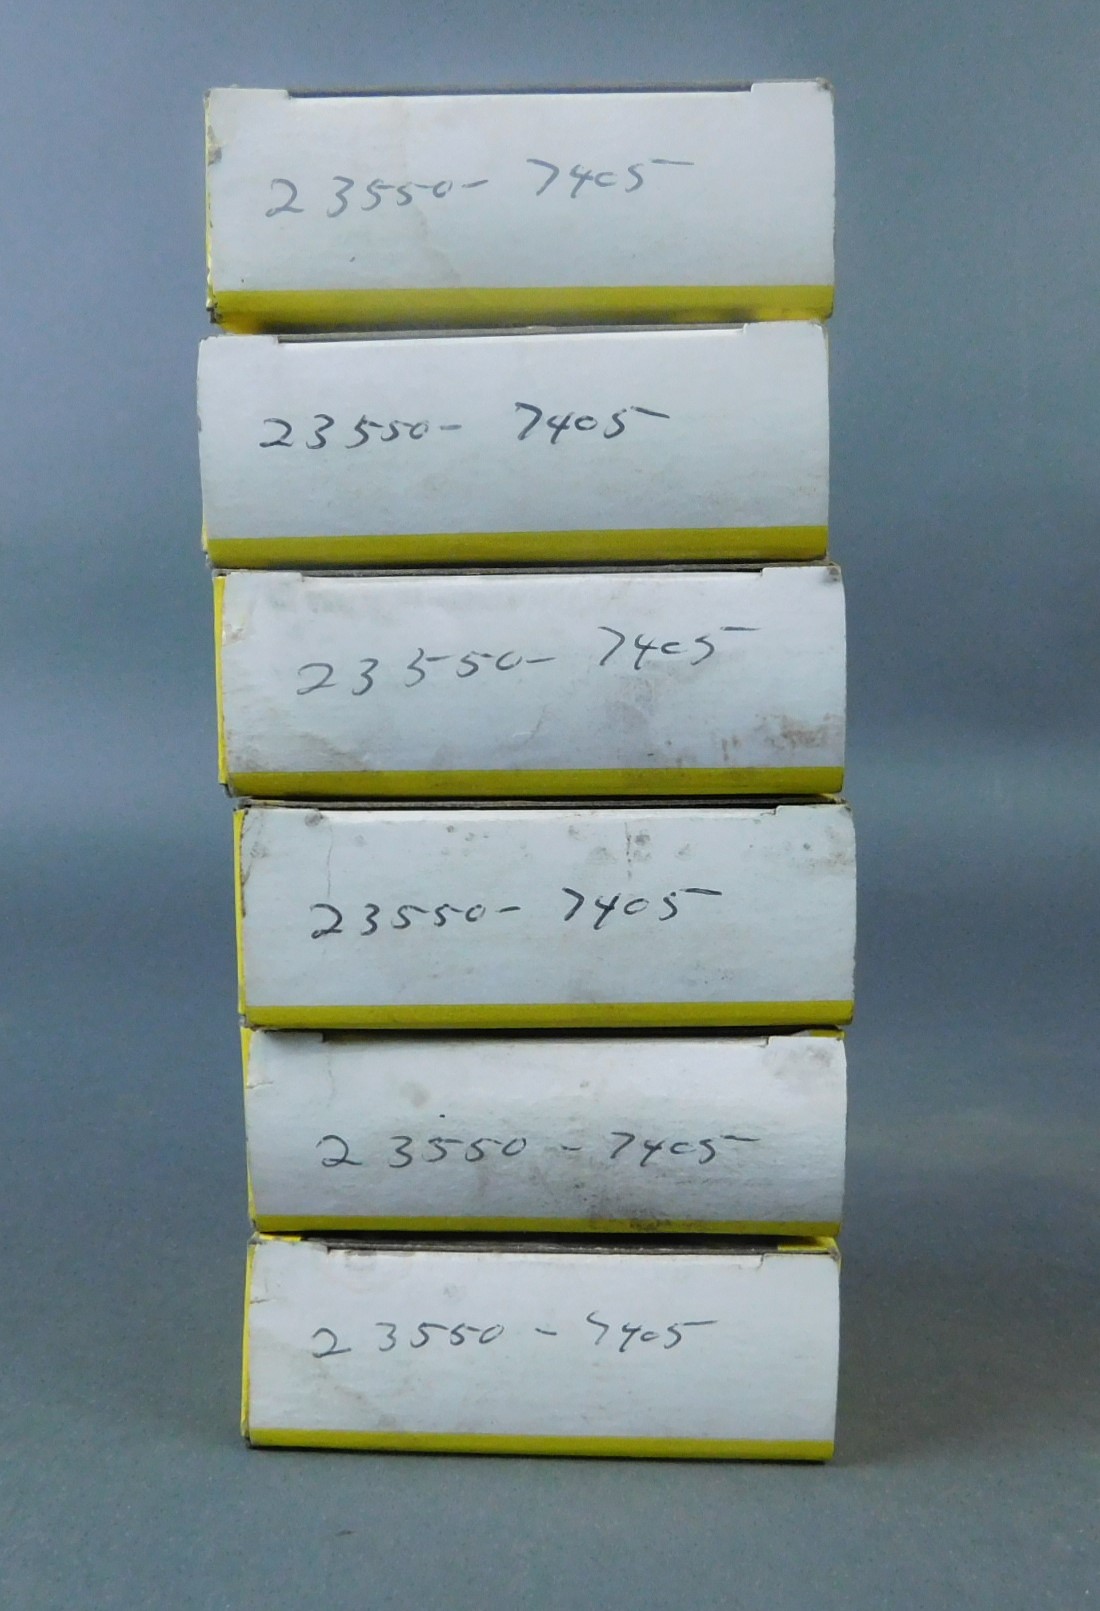 23550- 7405
23550- 7405
23550- 7405
23550- 7405
23550 - 7405
23550 - 7405